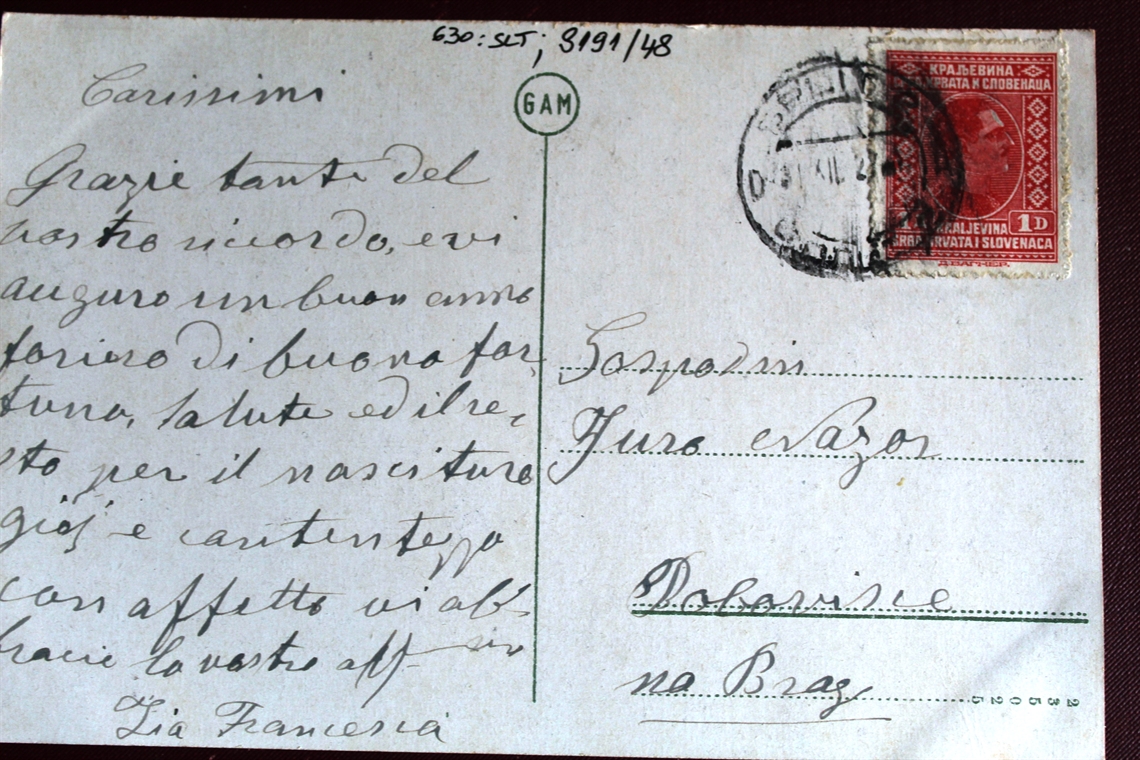 630: SLT; 9191/48
GAM
Carissimi
Grazie tante del
vostro ricordo, evi
auguro un buon anno
foriero di buona for-
tuna, salute ed il re-
sto per il nascituro
gioj e contentezza
con affetto vi ab-
bracie la vostra aff
Zia Francesca
КРАЉЕВИНА
СРБА ХРВАТА И СЛОВЕНАЦА
1D
KRALJEVINA
SRBA HRVATA I SLOVENACA
Gospodin
Juro Nazor
Bobovisce
na Brač
2 2 5 3 5 0 2 5